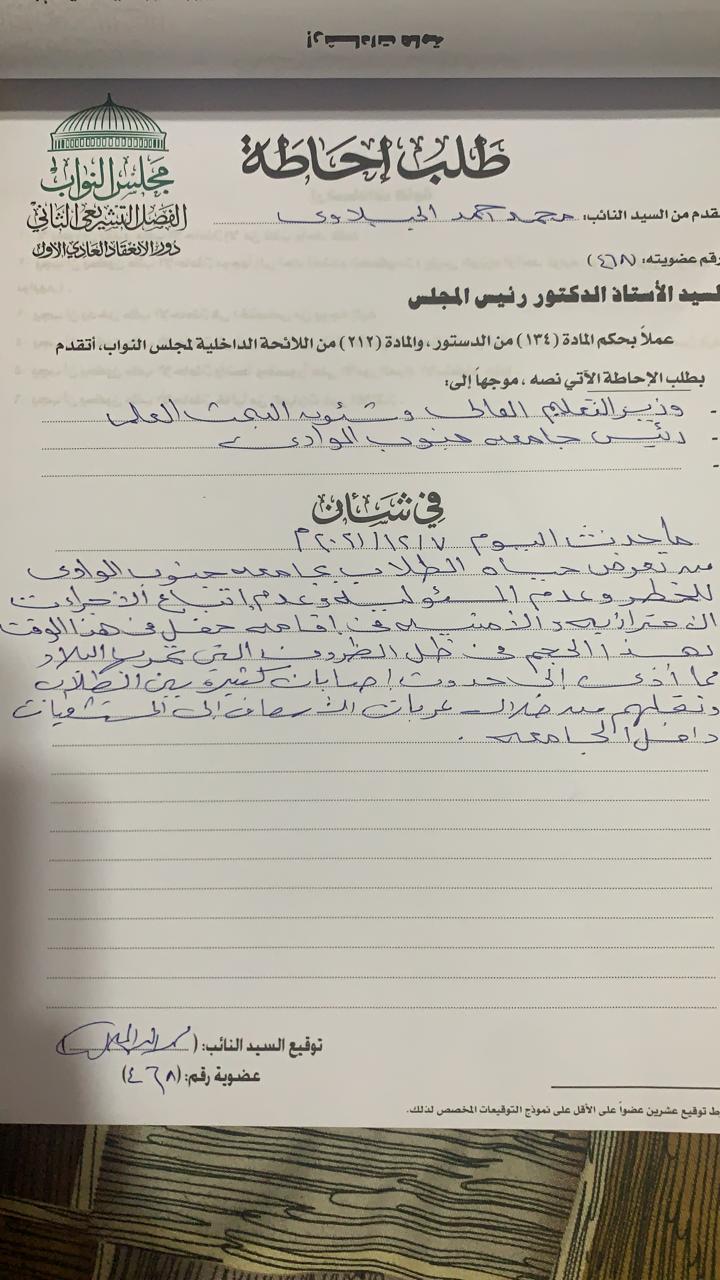 إرشـــادات هامة
مجلس النواب
الفصل التشريعى الثانى
دور الانعقاد العادى الأول
طلب إحاطة
مقدم من السيد النائب: محمد احمد الجبلاوى
رقم عضويته: (٤٦٨)
السيد الأستاذ الدكتور رئيس المجلس
عملاً بحكم المادة (١٣٤) من الدستور، والمادة (٢١٢) من اللائحة الداخلية لمجلس النواب، أتقدم
بطلب الإحاطة الآتي نصه، موجهاً إلى:
- وزير التعليم العالى وشئون البحث العلمى
- رئيس جامعه جنوب الوادى
-
في شأن
ما حدث اليوم ٢٠٢١/١٢/٧م
من تعرض حياه الطلاب بجامعه جنوب الوادى
للخطر وعدم المسئوليه وعدم إتباع الأجراءت
الاحترازيه والأمنيه فى إقامه حفل فى هذا الوقت
بهذا الحجم فى ظل الظروف التى تمر بها البلاد
مما أدى إلى حدوث إصابات كثيرة بين الطلاب
ونقلهم من خلال عربات الأسعاف إلى المستشفيات
داخل الجامعه .
توقيع السيد النائب: ( )
عضوية رقم: (٤٦٨)
توقيع عشرين عضواً على الأقل على نموذج التوقيعات المخصص لذلك.